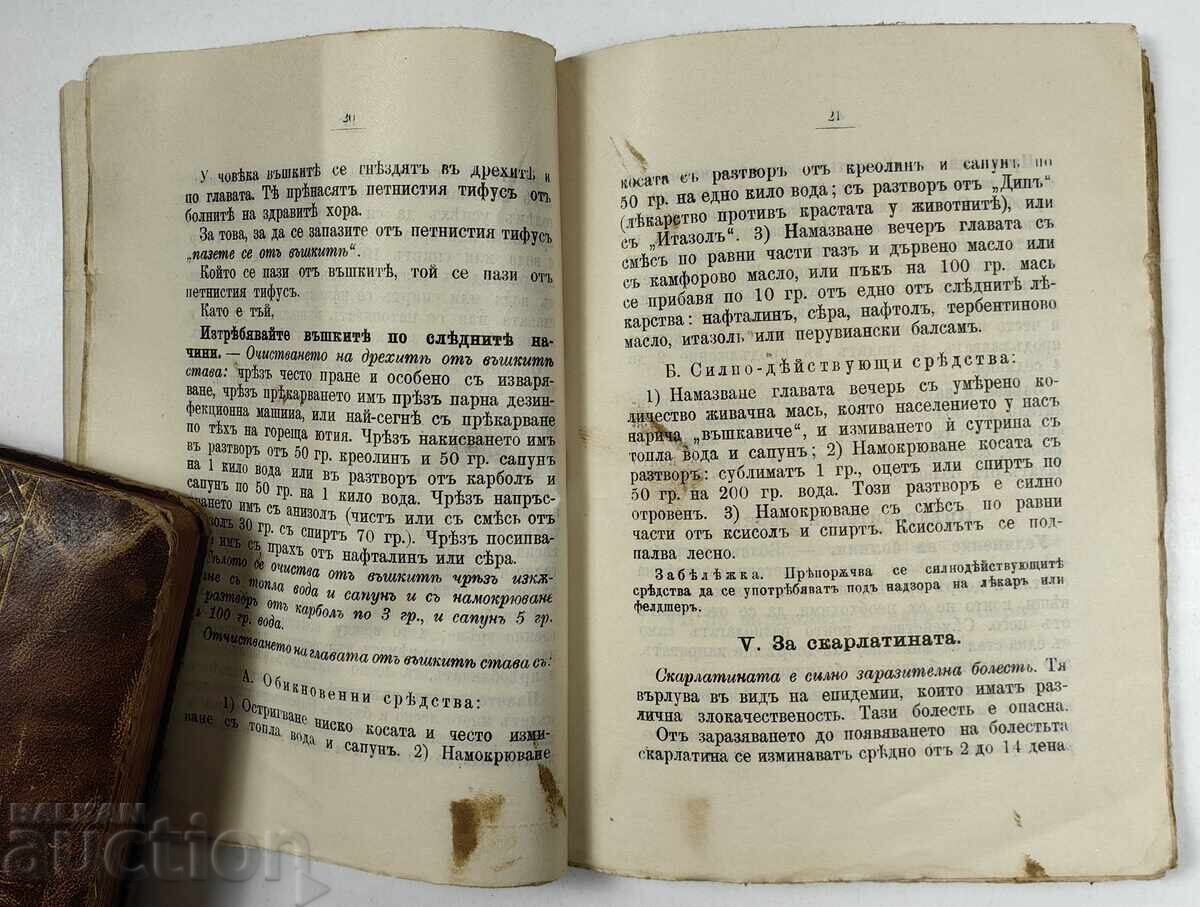 20
У човѣка въшкитѣ се гнѣздятъ въ дрехитѣ и
по главата. Тѣ прѣнасятъ петнистия тифусъ отъ
болнитѣ на здравитѣ хора.
За това, за да се запазите отъ петнистия тифусъ
„пазете се отъ въшкитѣ“.
Който се пази отъ въшкитѣ, той се пази отъ
петнистия тифусъ.
Като е тъй,
Изтрѣбвайте въшкитѣ по слѣднитѣ на-
чини. — Очистването на дрехитѣ отъ въшкитѣ
става: чрѣзъ често пране и особено съ изваря-
ване, чрѣзъ прѣкарването имъ прѣзъ парна дезин-
фекционна машина, или най-сегнѣ съ прѣкарване
по тѣхъ на гореща ютия. Чрѣзъ накисването имъ
въ разтвор отъ 50 гр. креолин и 50 гр. сапун
на 1 кило вода или въ разтвор отъ карбол и
сапунъ по 50 гр. на 1 кило вода. Чрѣзъ напръс-
ването имъ съ анизол (чист или съ смѣсь отъ
золъ 30 гр. съ спирт 70 гр.). Чрѣзъ посипва-
имъ съ прахъ отъ нафталин или сѣра.
Тѣлото се очиства отъ въшкитѣ чрѣзъ изкѫ-
не съ топла вода и сапун и съ намокрюване
разтворъ отъ карбол по 3 гр., и сапун 5 гр.
100 гр. вода.
Отчистването на главата отъ въшкитѣ става съ:
А. Обикновенни срѣдства:
1) Остригване ниско косата и често изми-
ване съ топла вода и сапунъ. 2) Намокрюване
21
косата съ разтвор отъ креолинъ и сапунъ по
50 гр. на едно кило вода; съ разтвор отъ „Дипъ“
(лѣкарство противъ крастата у животнитѣ), или
съ „Итазолъ“. 3) Намазване вечеръ главата съ
смѣсъ по равни части газъ и дървено масло или
съ камфорово масло, или пъкъ на 100 гр. мась
се прибавя по 10 гр. отъ едно отъ слѣднитѣ лѣ-
карства: нафталин, сѣра, нафтол, тербентиново
масло, итазолъ или перувиански балсамъ.
Б. Силно-дѣйствующи срѣдства:
1) Намазване главата вечерь съ умѣрено ко-
личество живачна мась, която населението у насъ
нарича „въшкавиче“, и измиването ѝ сутрина съ
топла вода и сапунъ; 2) Намокрюване косата съ
разтворъ: сублиматъ 1 гр., оцетъ или спиртъ по
50 гр. на 200 гр. вода. Този разтворъ е силно
отровенъ. 3) Намокрюване съ смѣсъ по равни
части отъ ксисолъ и спиртъ. Ксисолътъ се под-
палва лесно.
Забѣлѣжка. Прѣпорѫчва се силнодѣйствующитѣ
срѣдства да се употрѣбяватъ подъ надзора на лѣкарь или
фелдшеръ.
V. За скарлатината.
Скарлатината е силно заразителна болесть. Тя
върлува въ видъ на епидемии, които иматъ раз-
лична злокачественость. Тази болесть е опасна.
Отъ заразяването до появяването на болестьта
скарлатина се изминаватъ срѣдно отъ 2 до 14 дена
BALKAN
auction